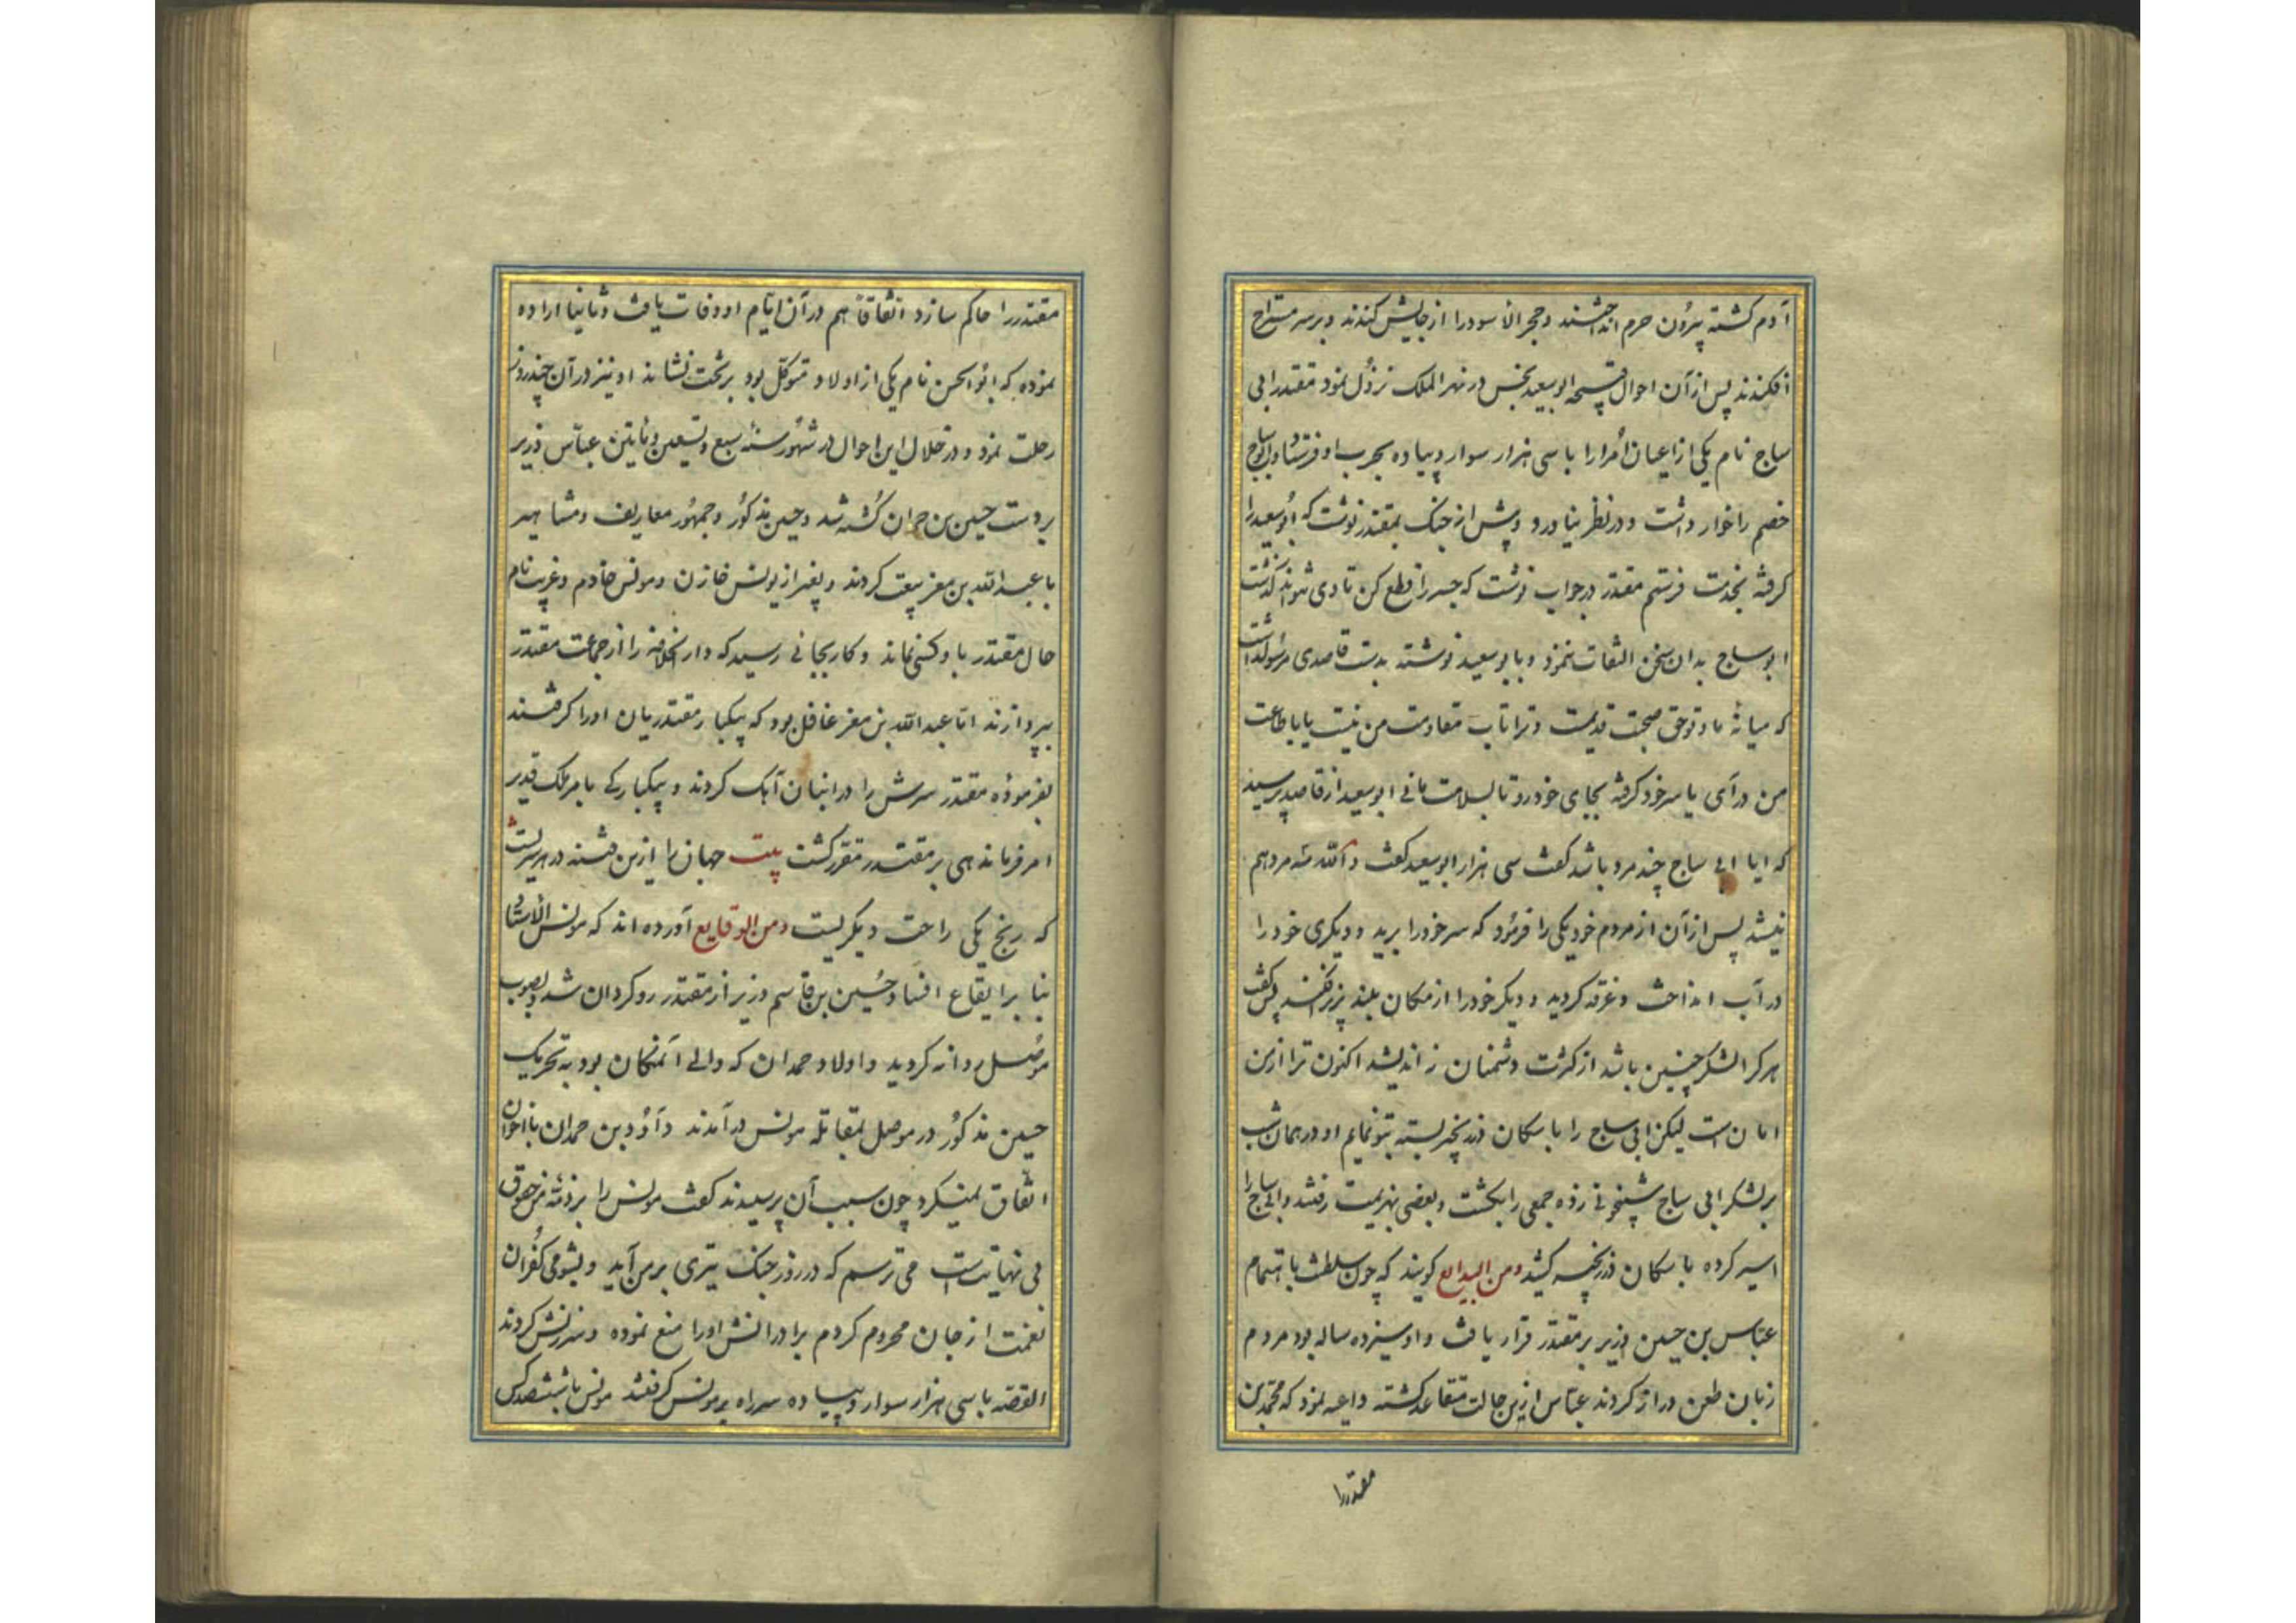 آدم کشته بیرون حرم انداختند و حجر الاسود را از جایش کندند و بر سر مستراح
افکندند پس از آن احوال ابوسعید نجس در نهر الملک نزول نمود مقتدر ابی
ساج نام یکی از اعیان امرا را با سی هزار سوار و پیاده بحرب او فرستاد ابو ساج
خصم را خوار داشت و در نظر نیاورد و پیش از جنگ بمقتدر نوشت که ابو سعید را
گرفته بخدمت فرستم مقتدر در جواب نوشت که جسر را قطع کن تا وی نتواند گذشت
ابو ساج بدان سخن التفات ننمود و بابو سعید نوشته بدست قاصدی
که میانهٔ ما و تو حق صحبت قدیمست و ترا تاب مقاومت من نیست یا باطاعت
من در آی یا سر خود گرفته بجای خود رو تا بسلامت مانی ابو سعید از قاصد پرسید
که ایا ابی ساج چند مرد باشد گفت سی هزار ابو سعید گفت والله سه مرد هم
نیستند پس از آن از مردم خود یکی را فرمود که سر خود را برید و دیگری خود را
در آب انداخت و غرقه گردید و دیگر خود را از مکان بلند بزیر افکند پس گفت
هر کرا لشکر چنین باشد از کثرت دشمنان نه اندیشد اکنون ترا ازین
امان است لیکن ابی ساج را با سگان در زنجیر بسته بتو نمایم او در همان شب
بر لشکر ابی ساج شبیخونی زده جمعی را بکشت و بعضی بهزیمت رفتند و ابی ساج را
اسیر کرده با سگان در زنجیر کشید ومن البدایع گویند که چون سلطنت باهتمام
عباس بن حسین وزیر بر مقتدر قرار یافت و او سیزده ساله بود مردم
زبان طعن دراز کردند عباس ازین حالت متقاعد گشته داعیه نمود که محمد بن
مقتدر را
مقتدر را حاکم سازد اتفاقاً هم در آن ایام او وفات یافت و ثانیا اراده
نموده که ابو الحسن نام یکی از اولاد متوکل بود بر تخت نشاند او نیز در آن چند روز
رحلت نمود و در خلال این احوال در شهور سنهٔ سبع و تسعین و مایتین عباس وزیر
بر دست حسین بن حمدان کشته شد و حسین مذکور و جمهور معاریف و مشاهیر
با عبد الله بن معز بیعت کردند و بغیر از یونس خازن و مونس خادم و غریب نام
خال مقتدر با و کسی نماند و کار بجائی رسید که دار الخلافه را از جماعت مقتدر
بپردازند اما عبد الله بن معز غافل بود که بیکبار مقتدریان او را گرفتند
بفرمودهٔ مقتدر سرش را در انبان آهک کردند و بیکبارگی بامر ملک قدیر
امر فرماندهی بر مقتدر مقرر گشت بیت جهان را ازین فتنه در هر سریست
که رنج یکی راحت دیگریست ومن الوقایع آورده اند که مونس الاستاد
بنا بر ایقاع افساد حسین بن قاسم وزیر از مقتدر روگردان شد و بصوب
موصل روانه گردید و اولاد حمدان که والی آنمکان بود به تحریک
حسین مذکور در موصل بمقاتلهٔ مونس در آمدند داؤد بن حمدان با اخوان
اتفاق نمیکرد چون سبب آن پرسیدند گفت مونس را بر ذمهٔ من حقوق
بی نهایتست می ترسم که در روز جنگ تیری بر من آید و بشومی کفران
نعمت از جان محروم گردم برادرانش او را منع نموده و سرزنش کردند
القصه با سی هزار سوار و پیاده سر راه بر مونس گرفتند مونس با ششصد کس